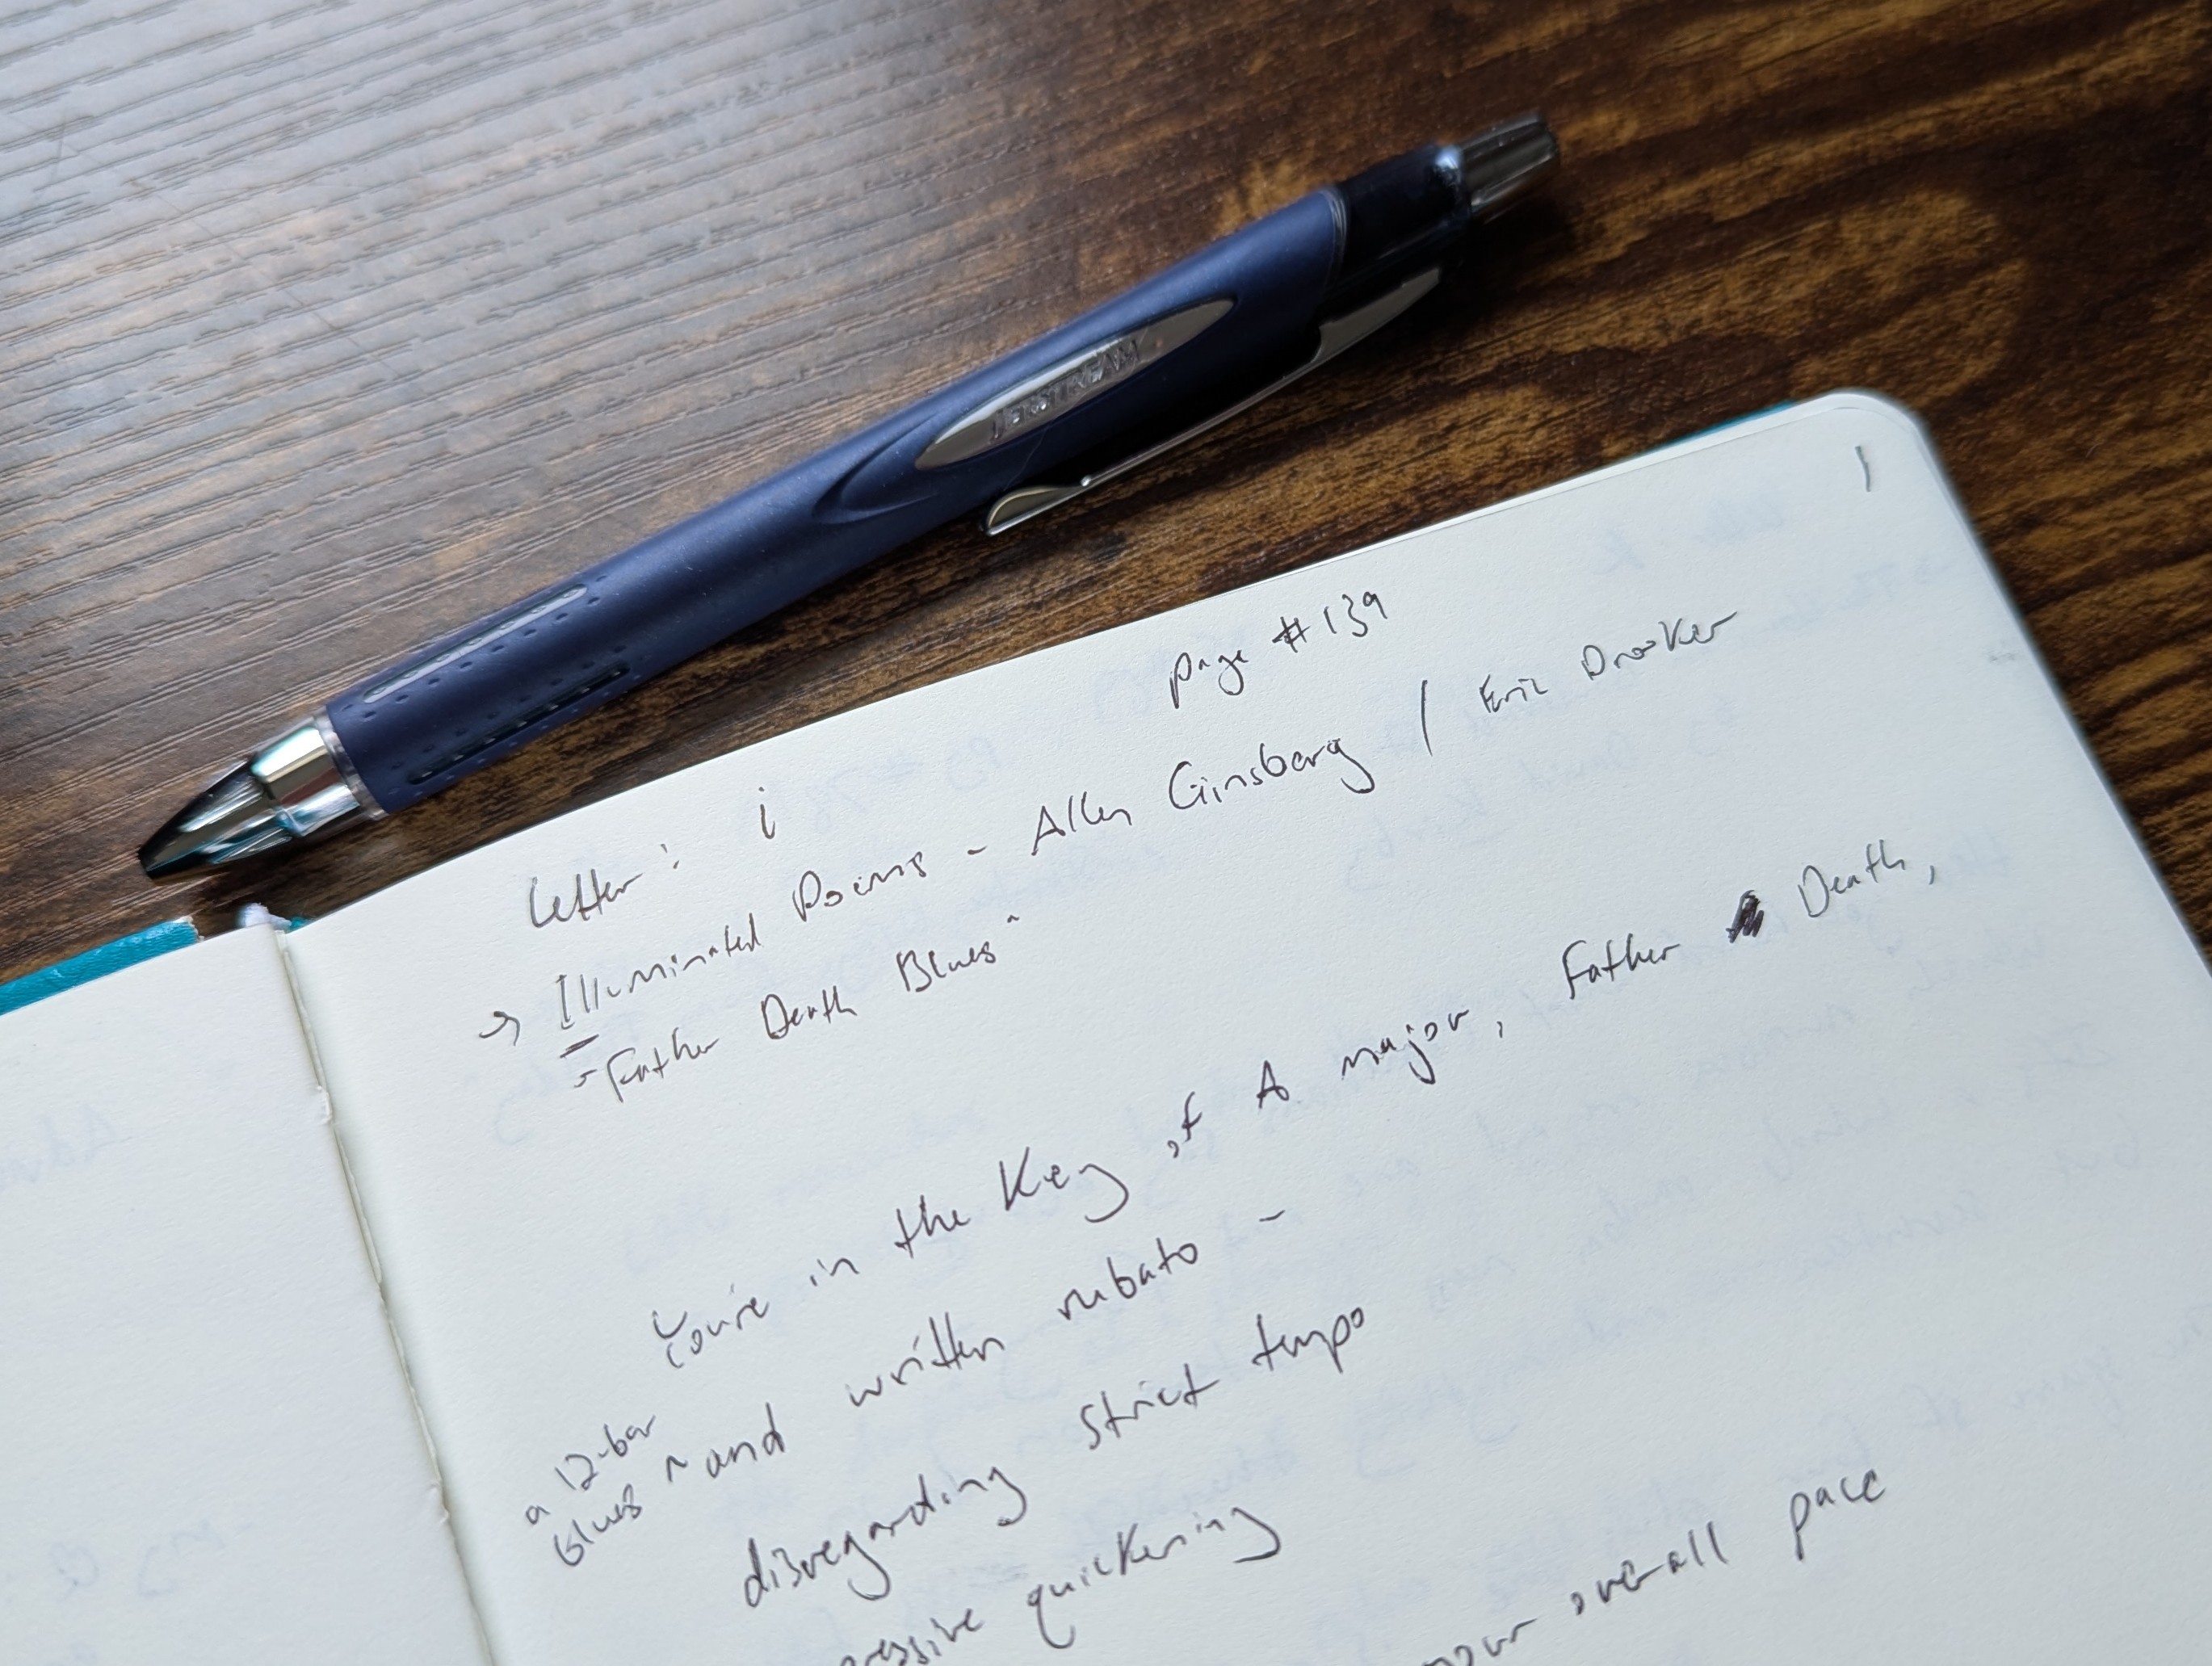 JETSTREAM
1
page #139
Letter: i
→ Illuminated Poems - Allen Ginsberg / Eric Drooker
- "Father Death Blues"
You're in the key of A major, Father Death,
a 12-bar blues ~ and written rubato -
disregarding strict tempo
quickening
overall pace